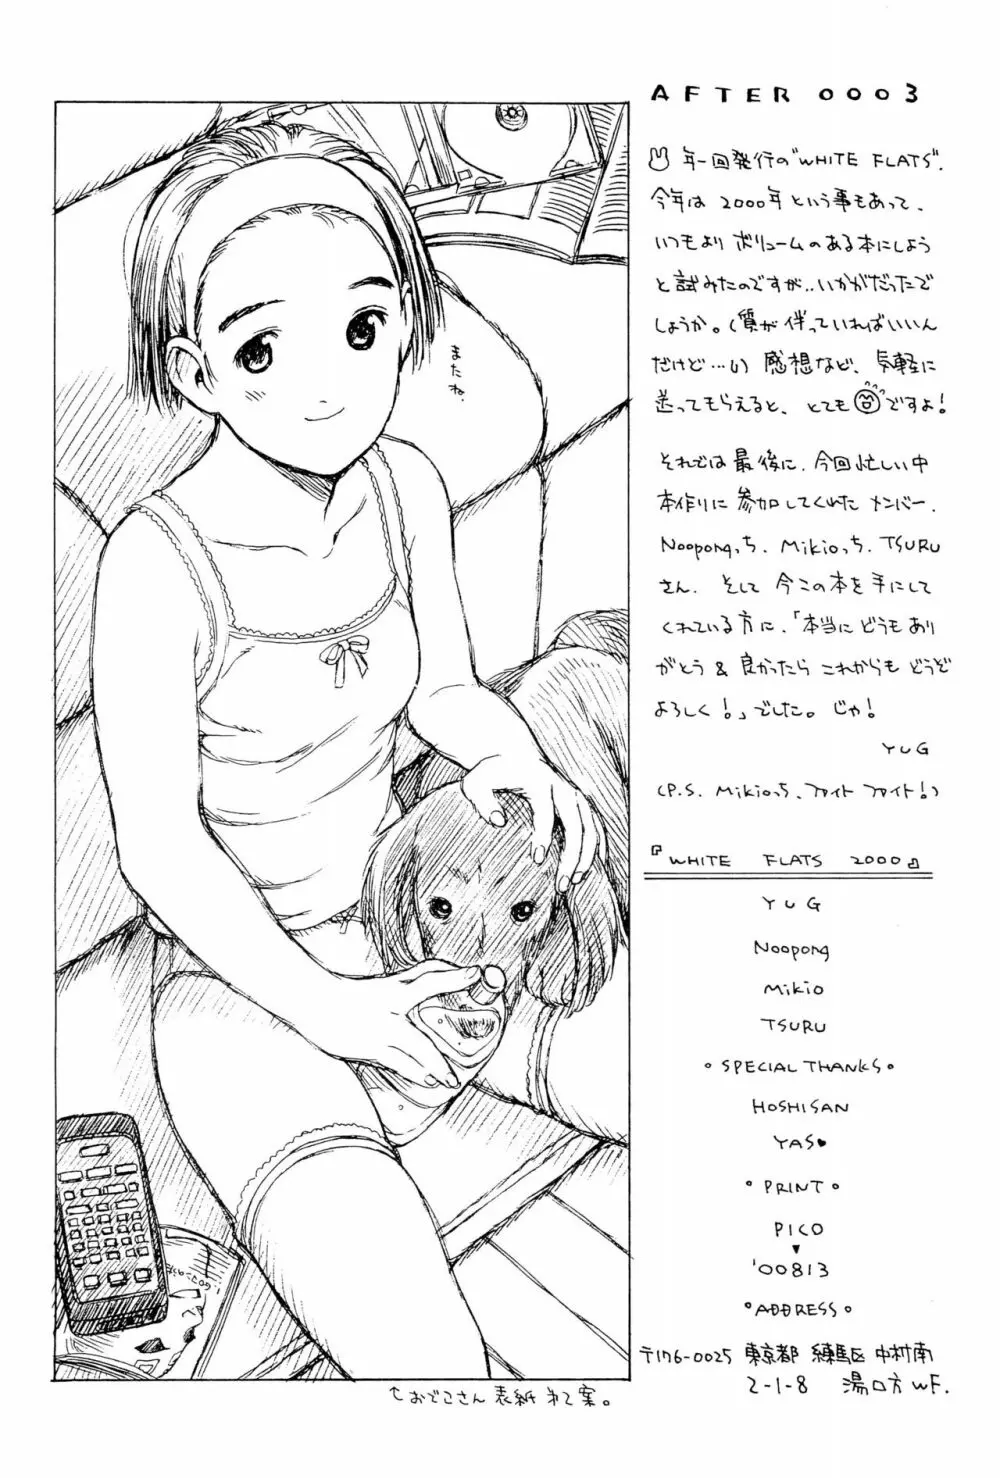 AFTER 0003
年一回発行の"WHITE FLATS".
今年は 2000年という事もあって、
いつもより ボリュームのある本にしよう
と試みたのですが..いかがだったで
しょうか。(質が伴っていればいいん
だけど…い) 感想など、気軽に
送ってもらえると、とても ですよ!
それでは最後に、今回忙しい中
本作りに参加してくれたメンバー、
Noopongっち、Mikioっち、TSURU
さん、そして今この本を手にして
くれている方に、「本当にどうもあり
がとう & 良かったら これからも どうぞ
よろしく!」でした。じゃ!
YUG
(P.S. Mikioっち、ファイト ファイト!)
『WHITE FLATS 2000』
YUG
Noopong
Mikio
TSURU
・SPECIAL THANKS・
HOSHISAN
YAS♥
・PRINT・
PICO
▼
'00813
・ADDRESS・
〒176-0025 東京都 練馬区 中村南
2-1-8 湯口方 WF.
またね。
おでこさん 表紙 第2案。